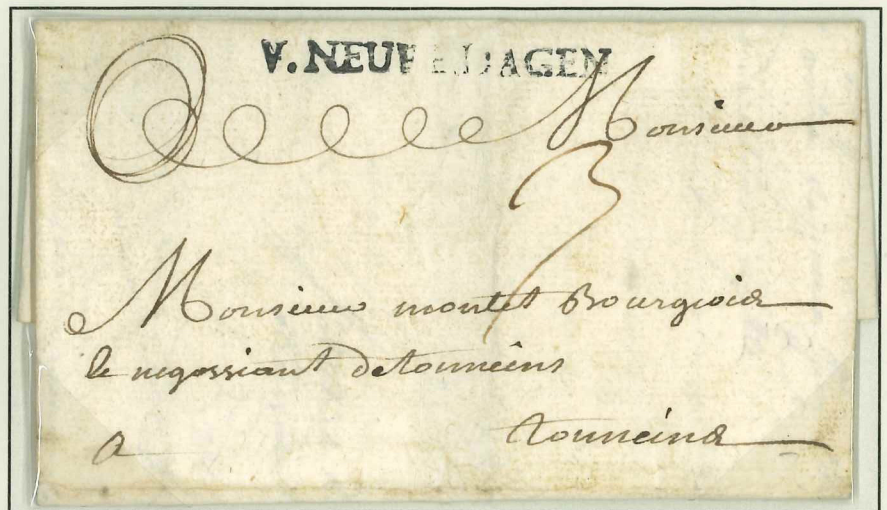 V.NEUF DAGEN
Monsieur
3
Monsieur montet Bourgoies
le negossiant detonneins
a tonneins